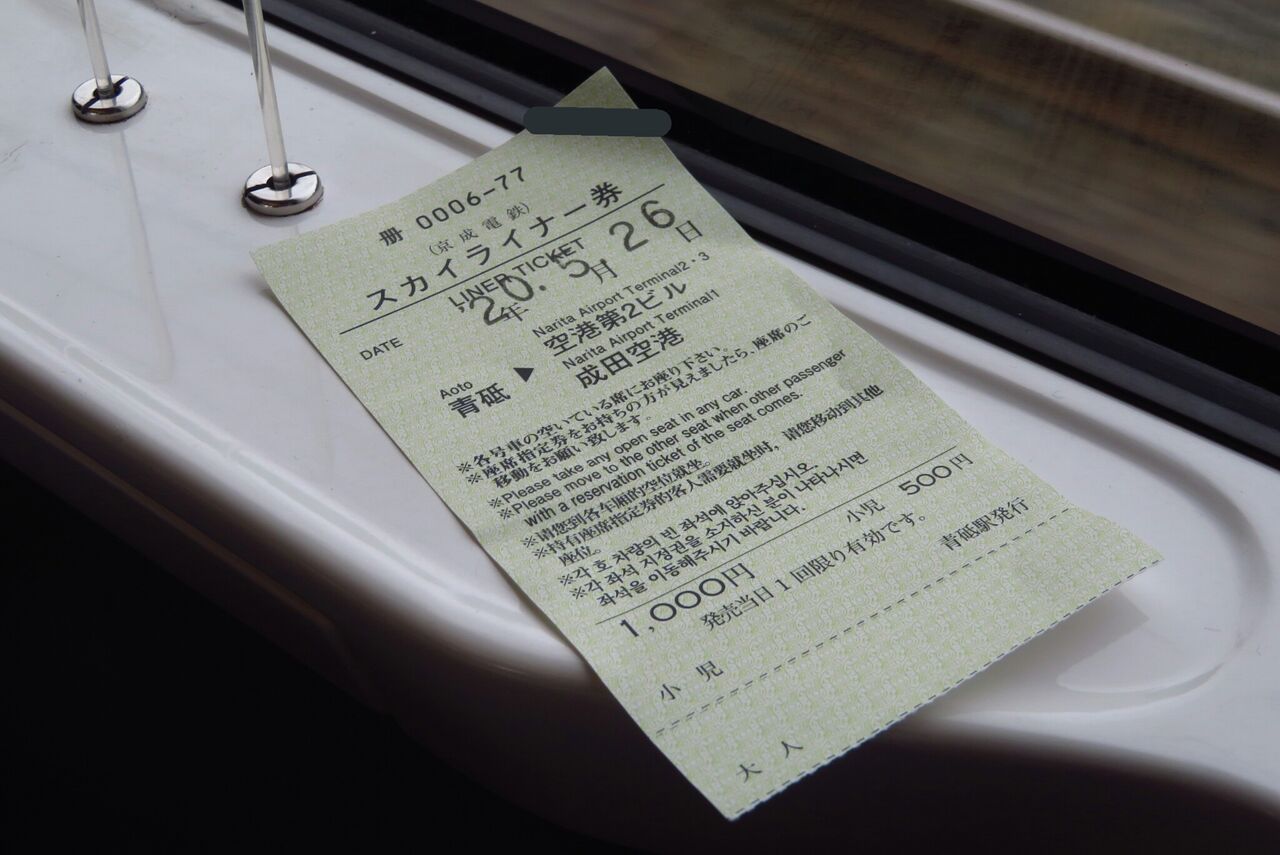 冊 0006-77
(京成電鉄)
スカイライナー券
LINER TICKET
DATE '20年 5月 26日
Narita Airport Terminal2・3
空港第2ビル
Aoto Narita Airport Terminal1
青砥 ▶ 成田空港
※各号車の空いている席にお座り下さい。
※座席指定券をお持ちの方が見えましたら、座席のご
移動をお願い致します。
※Please take any open seat in any car.
※Please move to the other seat when other passenger
with a reservation ticket of the seat comes.
※请您到各车厢的空位就坐。
※持有座席指定券的客人需要就坐时，请您移动到其他
座位。
※각 호 차량의 빈 좌석에 앉아주십시오
※각 좌석 지정권을 소지하신 분이 나타나시면
좌석을 이동해주시기 바랍니다.
1,000円 小児 500円
発売当日1回限り有効です。
青砥駅発行
小児
大人